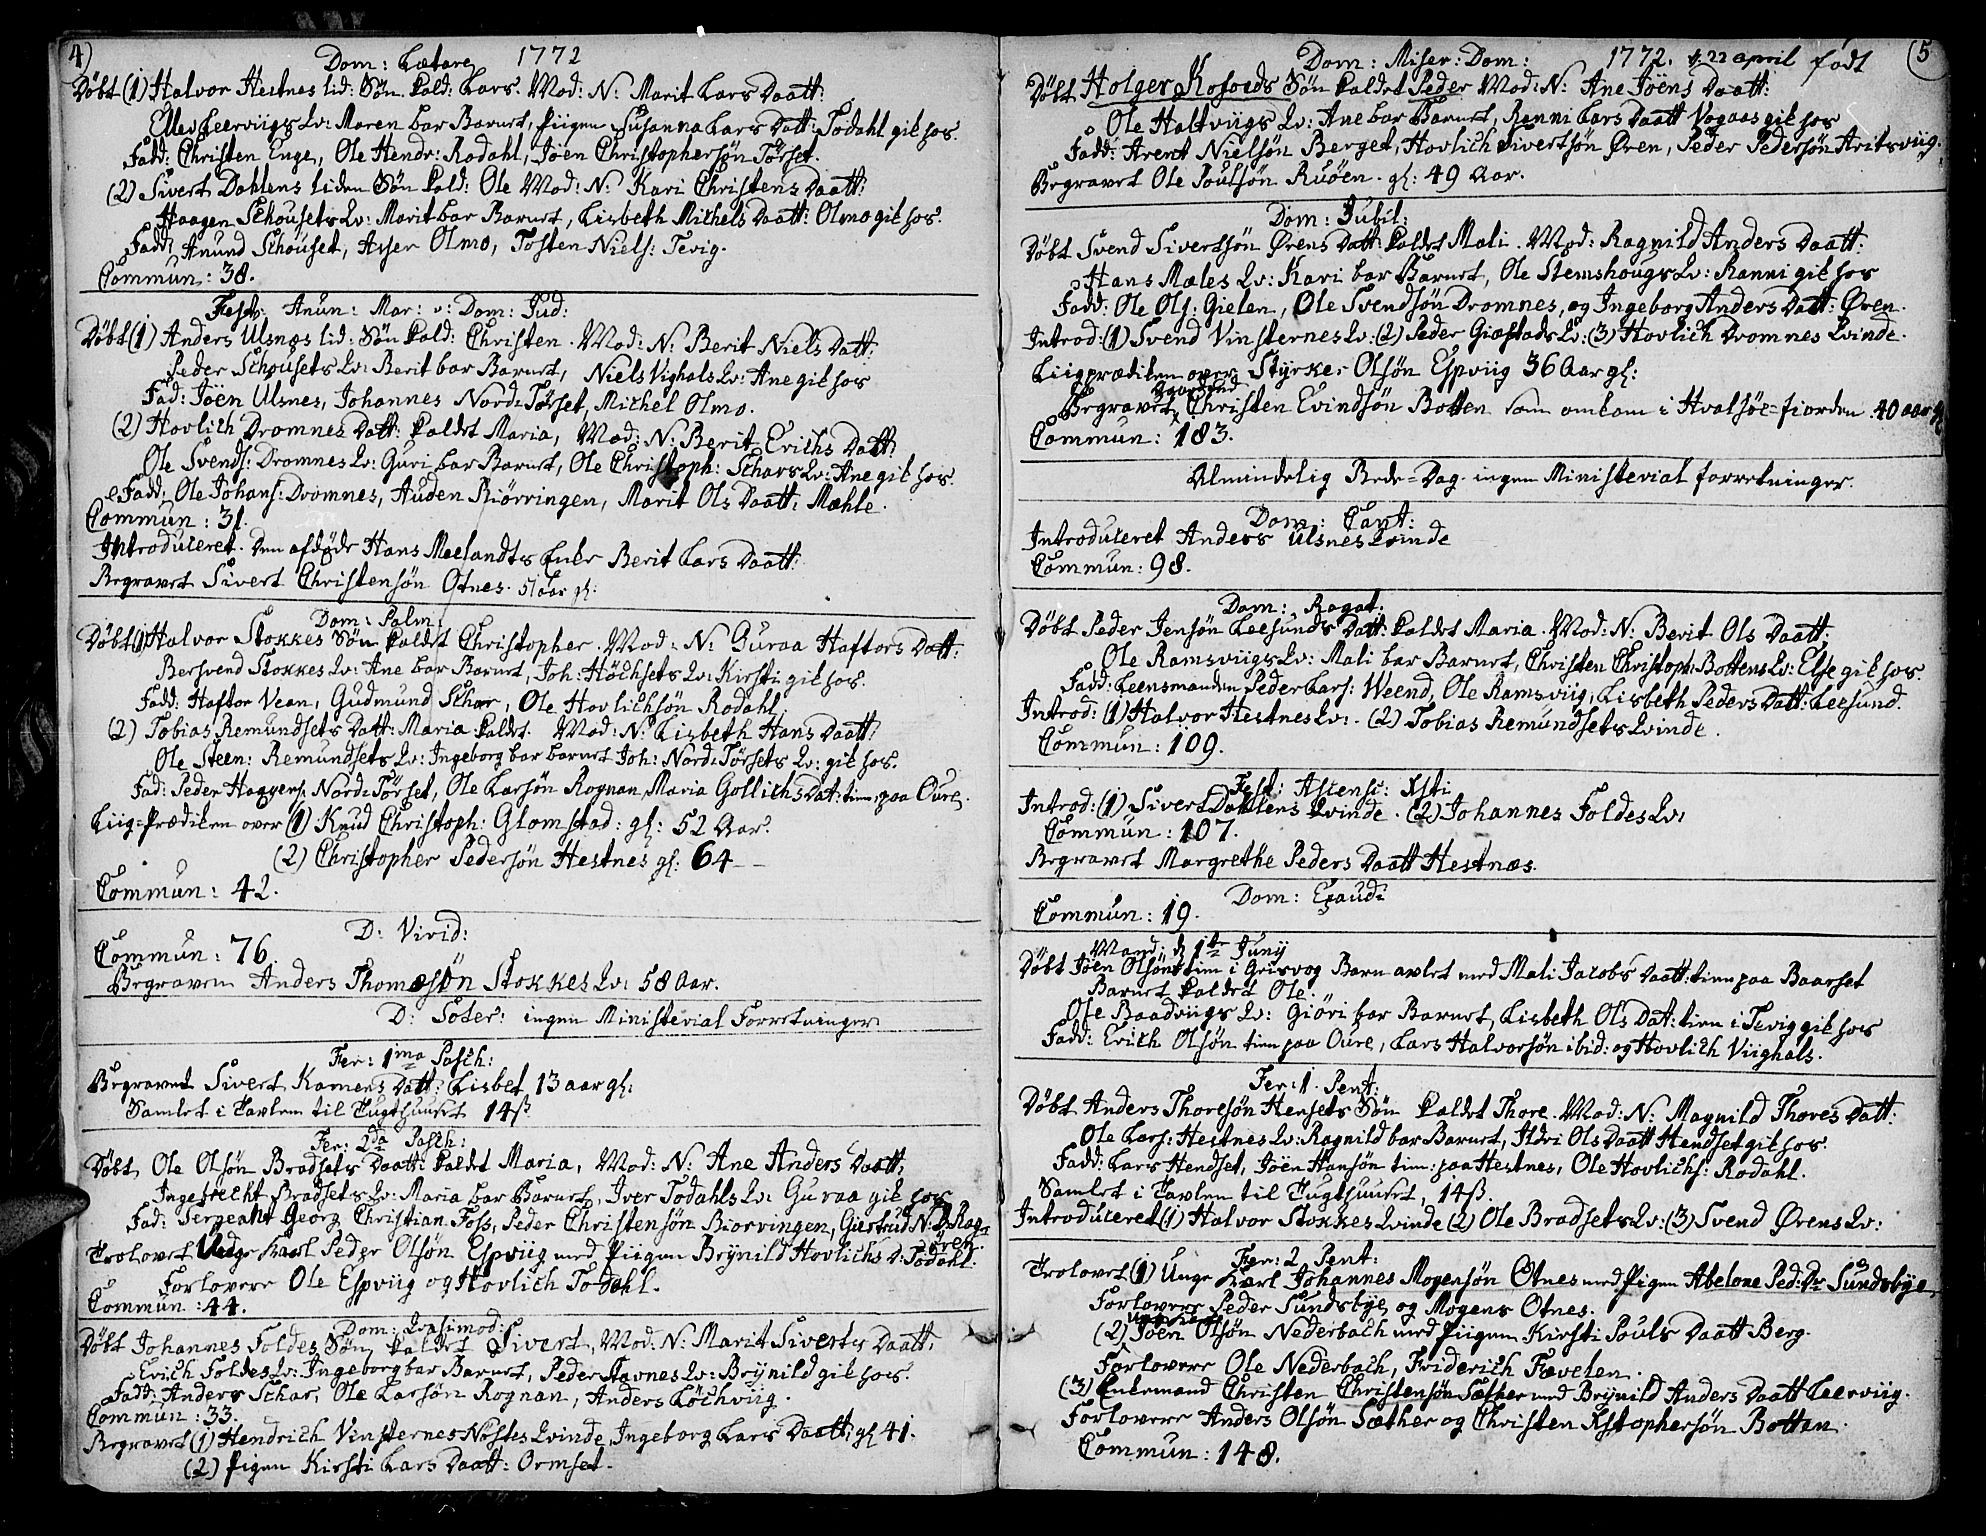 4)
Dom: Lætare 1772
Døbt (1) Halvor Hestnes lid: Søn kald: Lars. Mod: N: Marit Lars Daatt:
Ellev Leerviigs Qv: Maren bar Barnet, Piigen Susanna Lars Datt: Todahl gik hos.
Fadd: Christen Enge, Ole Hendr: Rodahl, Jöen Christophersön Törset.
(2) Sivert Dahlens liden Søn kald: Ole Mod: N: Kari Christens Daatt:
Haagen Schousets Qv: Marit bar Barnet, Lisbeth Michels Daatt: Olmo gik hos.
Fadd: Anund Schouset, Asser Olmo, Tosten Niels: Tevig.
Commun: 38.
Fest: Anun: Mar: v: Dom: Jud:
Døbt (1) Anders Ulsnes lid: Søn kald: Christen. Mod: N: Berit Niels Datt:
Peder Schousets Qv: Berit bar Barnet, Niels Vighals Qv: Ane gik hos
Fad: Jöen Ulsnes, Johannes Nord-Törset, Michel Olmo.
(2) Hovlich Dromnes Datt: kaldet Maria, Mod: N: Berit Erichs Datt:
Ole Svends: Dromnes Qv: Guri bar Barnet, Ole Christoph: Schars Qv: Ane gik hos.
Fadd: Ole Johans: Dromnes, Auden Kiörringen, Marit Ols Daatt: Mæhle.
Commun: 31.
Introduceret. Den afdöde Hans Meelandts Enke Berit Lars Daatt:
Begravet Sivert Christensön Otnes. 51 aar gl:
Dom: Palm:
Døbt (1) Halvor Stokkes Søn kaldet Christopher. Mod: N: Guraa Haftors Datt:
Bersvend Stokkes Qv: Ane bar Barnet, Joh: Höchsets Qv: Kirsti gik hos.
Fadd: Haftor Vean, Gudmund Schar, Ole Hovlichsön Rodahl.
(2) Tobias Remundsets Datt: Maria kaldet. Mod: N: Lisbeth Hans Daatt:
Ole Steen: Remundsets Qv: Ingeborg bar barnet Joh: Nord-Törsets Qv: gik hos.
Fad: Peder Haagens: Nord-Törset, Ole Larsön Rognan, Maria Gollichs Dat: tien: paa Oure.
Liig-Prædiken over (1) Knud Christoph: Glomstad: gl: 52 Aar.
(2) Christopher Pedersön Hestnes gl: 64 –
Commun: 42.
D: Virid:
Commun: 76.
Begraven Anders Thomæsön Stokkes Qv: 58 Aar.
D: Soter: ingen Ministerial Forretninger
Fer: 1ma Pasch:
Begravet Sivert Kamens Datt: Lisbet 13 aar gl:
Samlet i Tavlen til Tugthuuset 14ß
Fer: 2da Pasch:
Døbt, Ole Olsön Bradsets Daatt: kaldet Maria, Mod: N: Ane Anders Daatt:
Ingebrecht Bradsets Qv: Maria bar Barnet, Iver Todahls Qv: Guraa gik hos
Fad: Sergeant Georg Christian Foss, Peder Christensön Biorvingen, Giertrud N: D: Rog-
ören.
Trolovet Unge Karl Peder Olsön Espviig med Piigen Brÿnild Hovlichs D: Todahl.
Forlovere Ole Espviig og Hovlich Todahl.
Commun: 44.
Dom: Qvasimod:
Døbt Johannes Foldes Søn kaldet Sivert, Mod: N: Marit Siverts Daatt:
Erich Foldes Qv: Ingeborg bar Barnet, Peder Stavnes Qv: Brÿnild gik hos.
Fadd: Anders Schar, Ole Larsön Rognan, Anders Löchviig.
Commun: 33.
Begravet (1) Hendrich Vinsternes Nöstes Qvinde Ingeborg Lars Daatt: gl 41.
(2) Pigen Kirsti Lars Daatt: Ormset.
5
Dom: Miser: Dom: 1772. d: 22 april født
Døbt Holger Kofoeds Søn kaldet Peder Mod: N: Ane Jöens Daatt:
Ole Haltviigs Qv: Ane bar Barnet, Ranni Lars Daatt Vogaas gik hos
Fadd: Arent Nielsön Berget, Hovlich Sivertsön Øren, Peder Pedersön Aritsviig.
Begravet Ole Poulsön Ruöen. gl: 49 Aar.
Dom: Jubil:
Døbt Svend Sivertsön Ørens Datt: kaldet Mali. Mod: Ragnild Anders Daatt:
Hans Mæles Qv: Kari bar Barnet, Ole Stemshougs Qv: Ranni gik hos
Fadd: Ole Ols: Gielen, Ole Svendsön Dromnes, og Ingeborg Anders Datt: Øren.
Introd: (1) Svend Vinsternes Qv: (2) Peder Giæstads Qv: (3) Hovlich Dromnes Qvinde.
Liigprædiken over Styrker Olsön Espviig 36 Aar gl:
Begravet Christen Evindsön Botten som omkom i Hvalsöe-fiorden 40 aar gl
Commun: 183.
Almindelig Bede-Dag ingen Ministerial forretninger.
Dom: Cant:
Introduceret Anders Ulsnes Qvinde
Commun: 98.
Dom: Rogat.
Døbt Peder Jensön Leesunds Datt: kaldet Maria. Mod: N: Berit Ols Daatt:
Ole Ramsviigs Qv: Mali bar Barnet, Christen Christoph: Bottens Qv: Else gik hos.
Fadd: Leensmanden Peder Lars: Weend, Ole Ramsviig, Lisbeth Peders Datt: Leesund.
Introd: (1) Halvor Hestnes Qv: (2) Tobias Remundsets Qvinde.
Commun: 109.
Fest: Ascens: Xsti
Introd: (1) Sivert Dahlens Qvinde. (2) Johannes Foldes Qv:
Commun: 107.
Begravet Margrethe Peders Daatt Hestnæs.
Dom: Exaudi
Commun: 19.
Mand: d 1te Junij
Døbt Jöen Olsöns tien i Grisvog Barn avlet med Mali Jacobs Daatt: tien paa Baarset
Barnet kaldet Ole.
Ole Baadviigs Qv: Giöri bar Barnet, Lisbeth Ols Dat: tien i Tevig gik hos
Fadd: Erich Olsön tien paa Oure, Lars Halvorsön ibid: og Hovlich Viighals.
Fer: 1. Pent:
Døbt Anders Thoresön Hensets Søn kaldet Thore. Mod: N: Magnild Thores Datt:
Ole Lars: Hestnes Qv: Ragnild bar Barnet, Ildri Ols Daatt Hendset gik hos.
Fadd: Lars Hendset, Jöen Hansön tien: paa Hestnes, Ole Hovlichs: Rodahl.
Samlet i Tavlen til Tugthuuset, 14ß.
Introduceret (1) Halvor Stokkes Qvinde (2) Ole Bradsets Qv: (3) Svend Ørens Qv:
Fer: 2. Pent:
Trolovet (1) Unge Karl Johannes Mogensön Otnes med Pigen Abelone Ped: Dr Sundsbÿe
Forlovere Peder Sundsbÿe og Mogens Otnes.
Unge Karl
(2) Jöen Olsön Nederbach med Piigen Kirsti Pouls Daatt Berg.
Forlovere Ole Nederbach, Friderich Tævelen.
(3) Enkemand Christen Christensön Sæther med Brÿnild Anders Daatt Leerviig.
Forlovere Anders Olsön Sæther og Christen Xstophersön Botten.
Commun: 148.